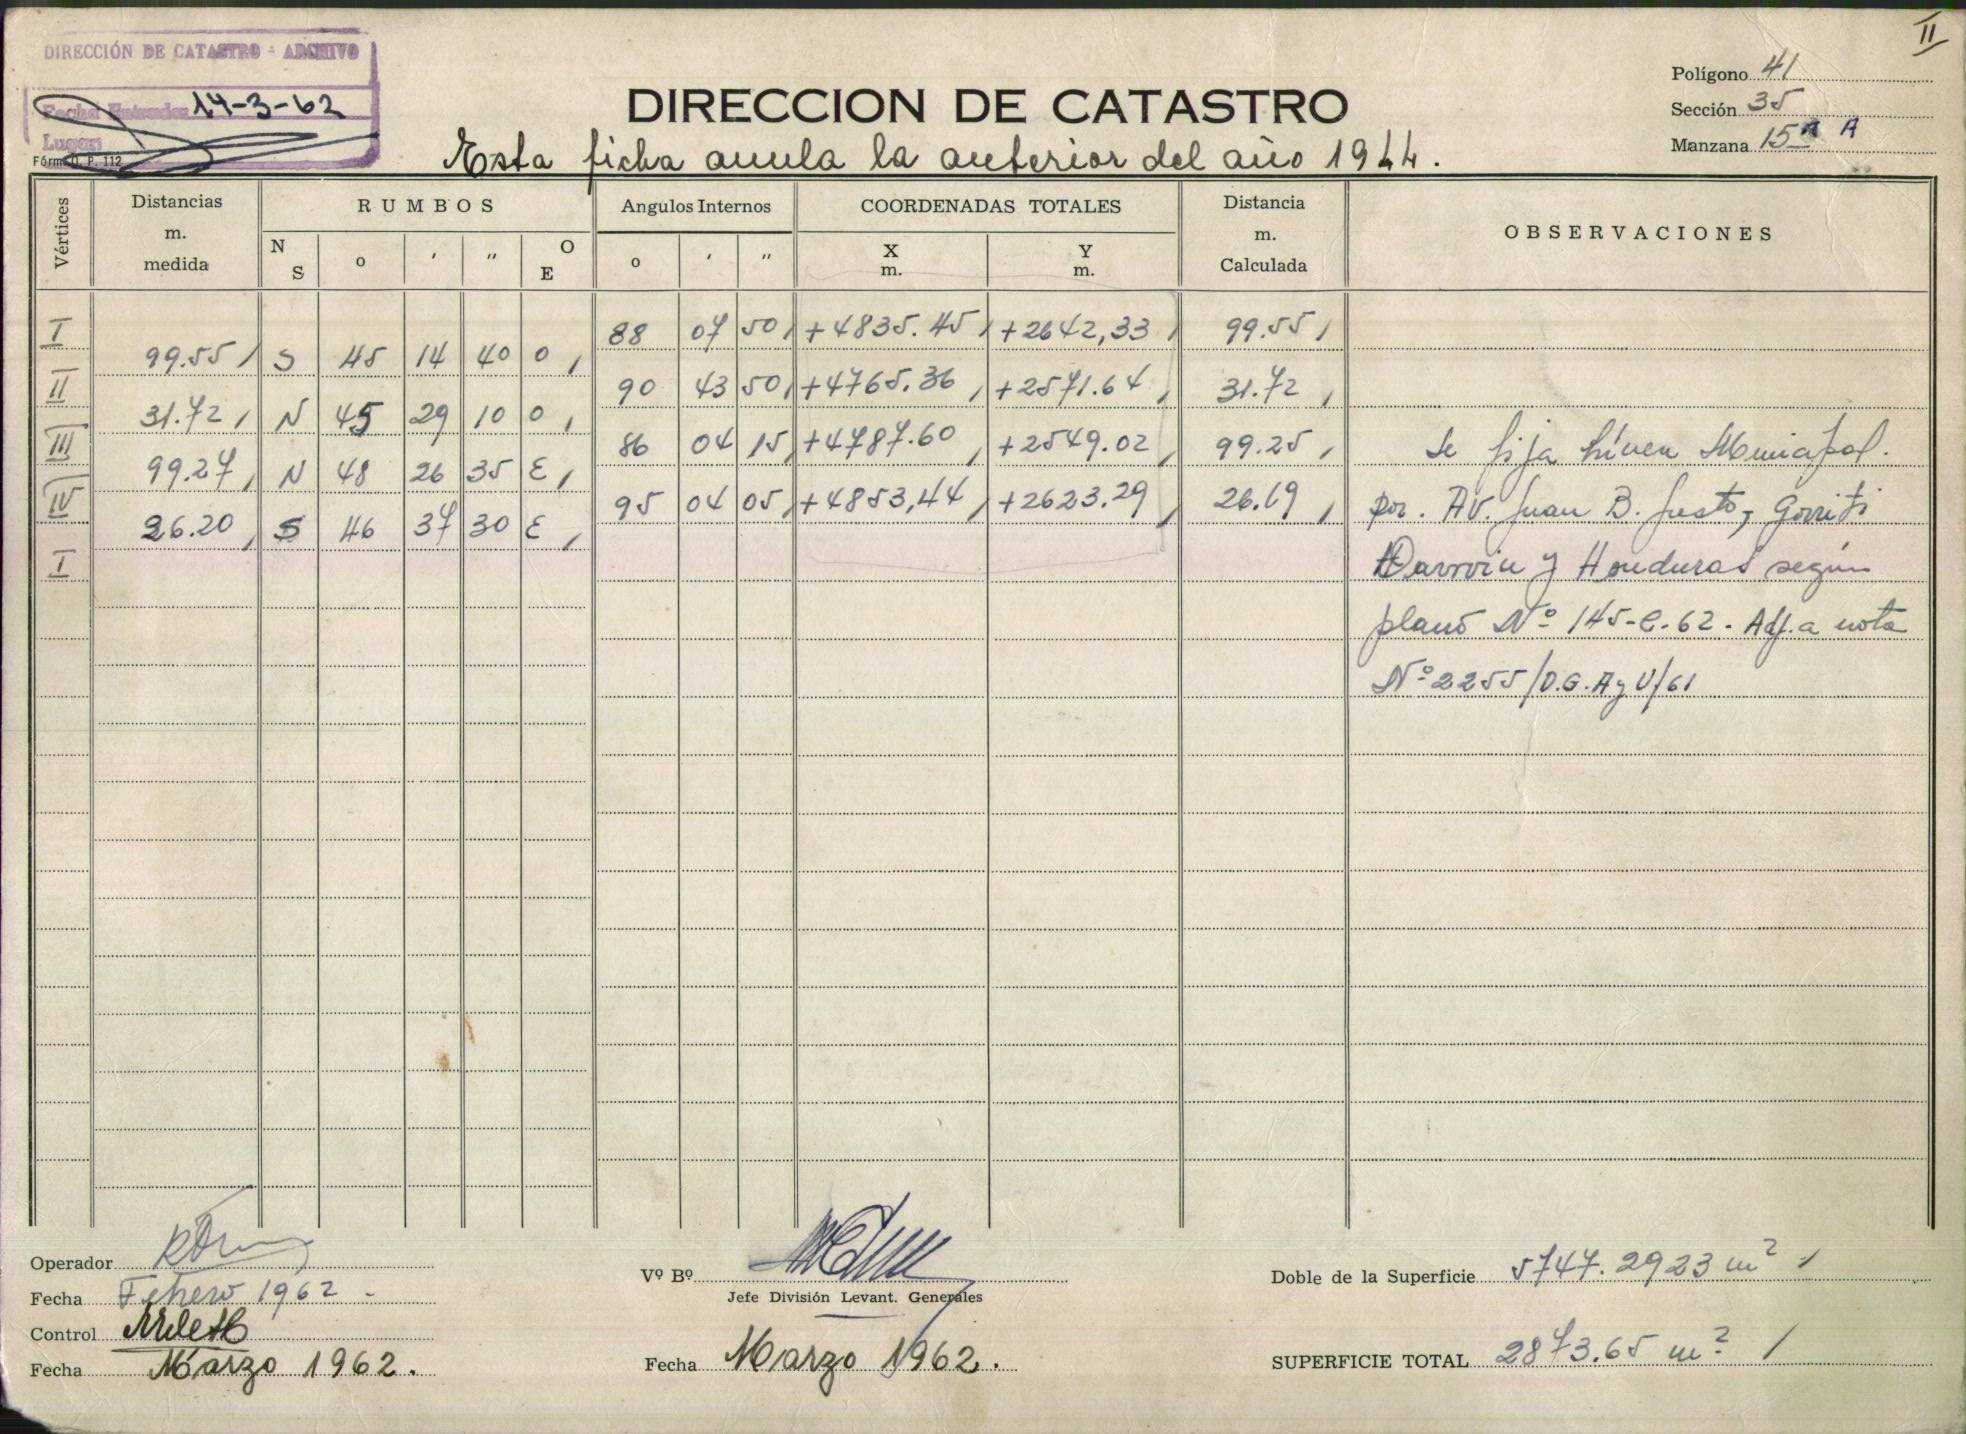 II
DIRECCIÓN DE CATASTRO - ARCHIVO
Fecha Entrada 14-3-62
Lugar
Fórm. D. P. 112
DIRECCION DE CATASTRO
Esta ficha anula la anterior del año 1944.
Polígono 41
Sección 35
Manzana 15 A A
Vértices Distancias m. medida RUMBOS Angulos Internos COORDENADAS TOTALES Distancia m. Calculada OBSERVACIONES
N S o ' " O E o ' " X m. Y m.
I 88 07 50 +4835.45 +2642,33 99.55
99.55 S 45 14 40 O
II 90 43 50 +4765.36 +2571.64 31.72
31.72 N 45 29 10 O
III 86 04 15 +4787.60 +2549.02 99.25
99.27 N 48 26 35 E
IV 95 04 05 +4853,44 +2623.29 26.19
26.20 S 46 37 30 E
I
Se fija línea Municipal.
por. AV. Juan B. Justo, Gorriti
Darwin y Honduras según
plano Nº 145-C-62. Adj. a nota
Nº 2255/D.G.A y U/61
Operador
Fecha Febrero 1962.
Control
Fecha Marzo 1962.
Vº Bº
Jefe División Levant. Generales
Fecha Marzo 1962.
Doble de la Superficie 5747.2923 m²
SUPERFICIE TOTAL 2873.65 m²